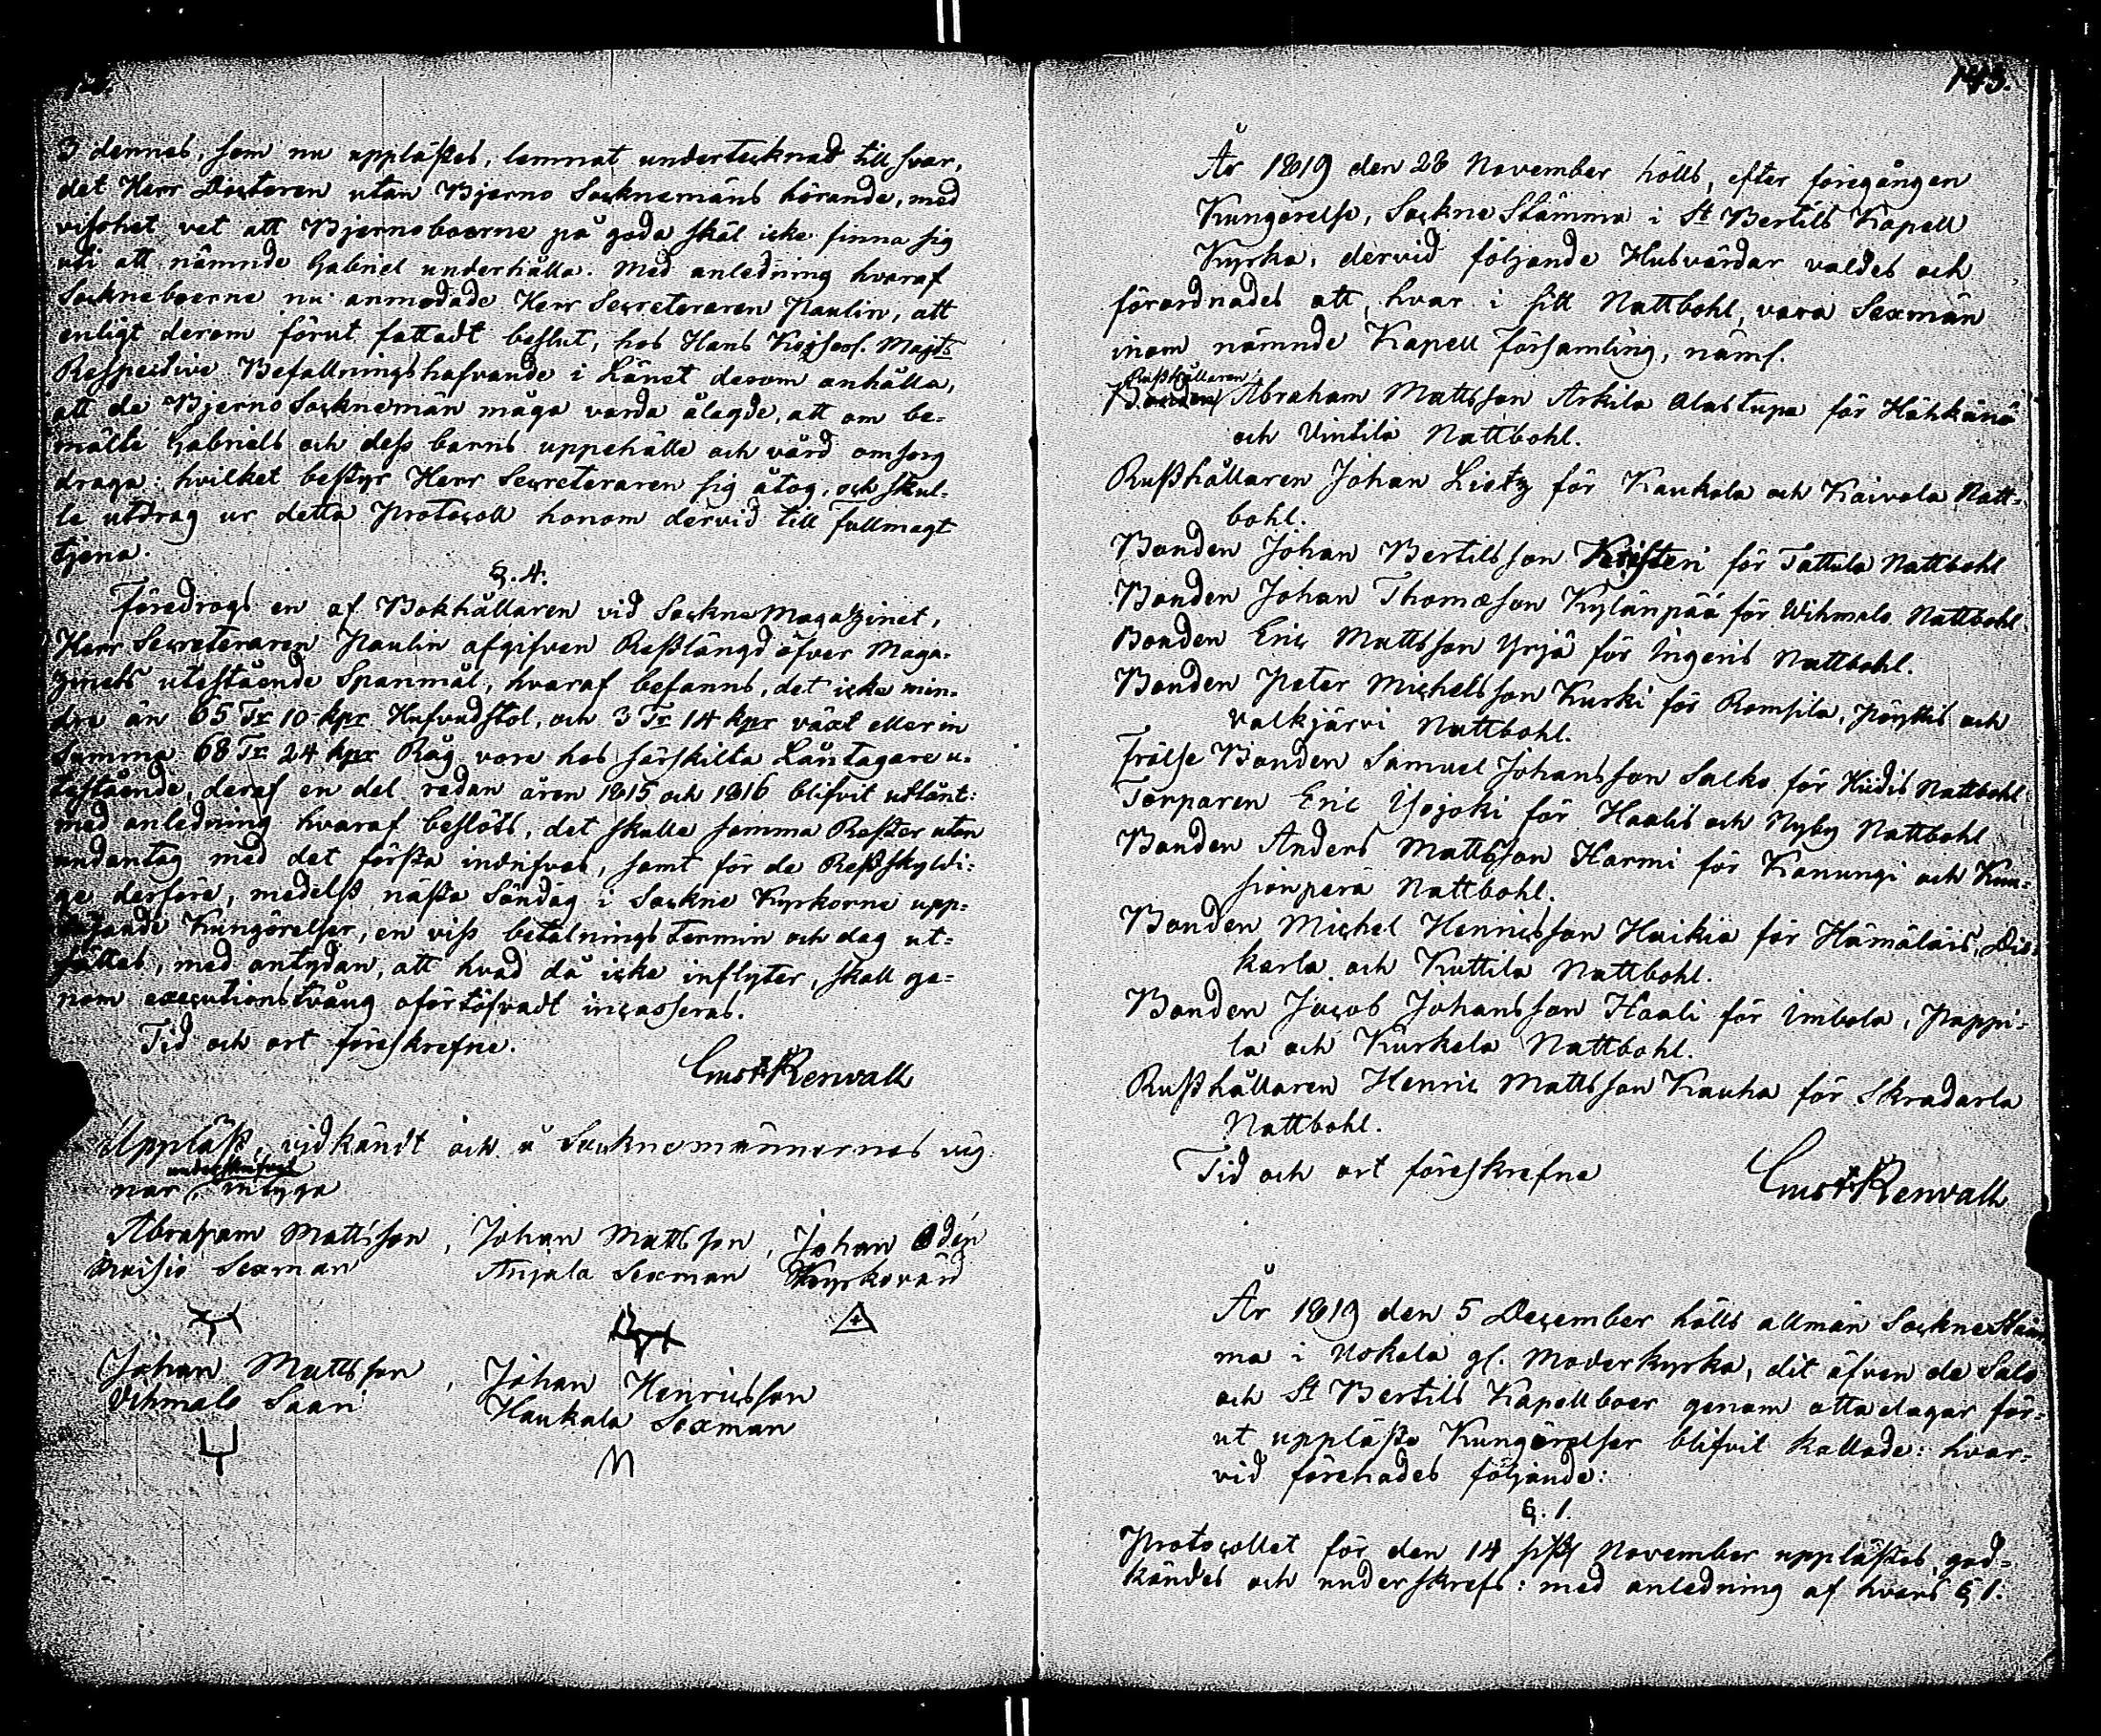 3 dennes, som nu upplästes, lemnat undertecknad till svar,
det Herr Doctoren utan Bjerno Socknemäns hörande, med
visshet vet att Bjernoboerne på goda skäl icke finna sig
uti att nämnde Gabriel underhålla. Med anledning hvaraf
Sockneboerne nu anmodade Herr Secreteraren Paulin, att
enligt derom förut fattadt beslut, hos Hans Kejserl. Majts
Respective Befallningshafvande i Länet derom anhålla,
att de Bjerno Socknemän måga varda ålagde, att om be-
mälte Gabriels och dess barns uppehälle och vård omsorg
draga: hvilket bestyr Herr Secreteraren sig åtog, och skul-
le utdrag ur detta Protocoll honom dervid till fullmagt
tjena.
§. 4.
Föredrogs en af Bokhållaren vid Sockne Magazinet,
Herr Secreteraren Paulin afgifven Restlängd öfver Maga-
zinets utestående Spanmål, hvaraf befanns, det icke min-
dre än 65 Tr 10 kpr Hufvudstol, och 3 Tr 14 kpr växt eller in
Summa 68 Tr 24 kpr Råg vore hos särskilta Låntagare u-
testående, deraf en del redan åren 1815 och 1816 blifvit utlånt:
med anledning hvaraf beslöts, det skulle samma Rester utan
undantag med det första indrifvas, samt för de Restskyldi-
ge derföre, medelst nästa Söndag i Sockne Kyrkorne upp-
Kungörelser, en viss betalnings termin och dag ut-
sättas, med antydan, att hvad då icke inflyter, skall ge-
nom executionstvång oförtöfvadt incasseras.
Tid och ort föreskrefne.
Gust Renvall
Uppläst, vidkändt och å Socknemännernes väg-
underskrifvet
nar, intyga
Abraham Mattsson, Johan Mattsson, Johan Odén
Sexman Anjala Sexman Kyrkovärd
Johan Mattsson, Johan Henricsson
Vihmalo Saari Haukala Sexman
143.
År 1819 den 28 November hölls, efter föregången
Kungörelse, Sockne Stämma i St Bertils Kapell
Kyrka, dervid följande Husvärdar valdes och
förordnades att, hvar i sitt Nattbohl, vara Sexmän
inom nämnde Kapell Församling, näml.
Rusthållaren
Bonden Abraham Mattsson Arkila Alastupa för Hähkänä
och Vintilä Nattbohl.
Rusthållaren Johan Lietz för Kaukola och Kaivola Natt-
bohl.
Bonden Johan Bertilsson Keisteri för Tattula Nattbohl
Bonden Johan Thomæson Kylänpää för Wihmalo Nattbohl
Bonden Eric Mattsson Yrjä för Ingeris Nattbohl.
Bonden Peter Michelsson Kurki för Romsila, Pöyttis och
Valkjärvi Nattbohl.
Frälse Bonden Samuel Johansson Salko för Hidis Nattbohl
Torparen Eric Isojoki för Haalis och Nyby Nattbohl
Bonden Anders Mattsson Harmi för Kanungi och Kuu-
sionperä Nattbohl.
Bonden Michel Henricsson Huikia för Hämäläis, Dis-
karla och Kuttila Nattbohl.
Bonden Jacob Johansson Haali för Imbola, Pappi-
la och Kärkela Nattbohl.
Rusthållaren Henric Mattsson Kauha för Skradarla
Nattbohl.
Tid och ort föreskrefne
Gust Renvall
År 1819 den 5 December hölls allmän Sockne Stäm-
ma i Uskela gl. Moderkyrka, dit äfven de Salo
och St Bertils Kapellboer genom åtta dagar för-
ut uppläste Kungörelser blifvit kallade: hvar-
vid förehades följande:
§. 1.
Protocollet för den 14 sistl November upplästes, god-
kändes och underskrefs: med anledning af hvars § 1.